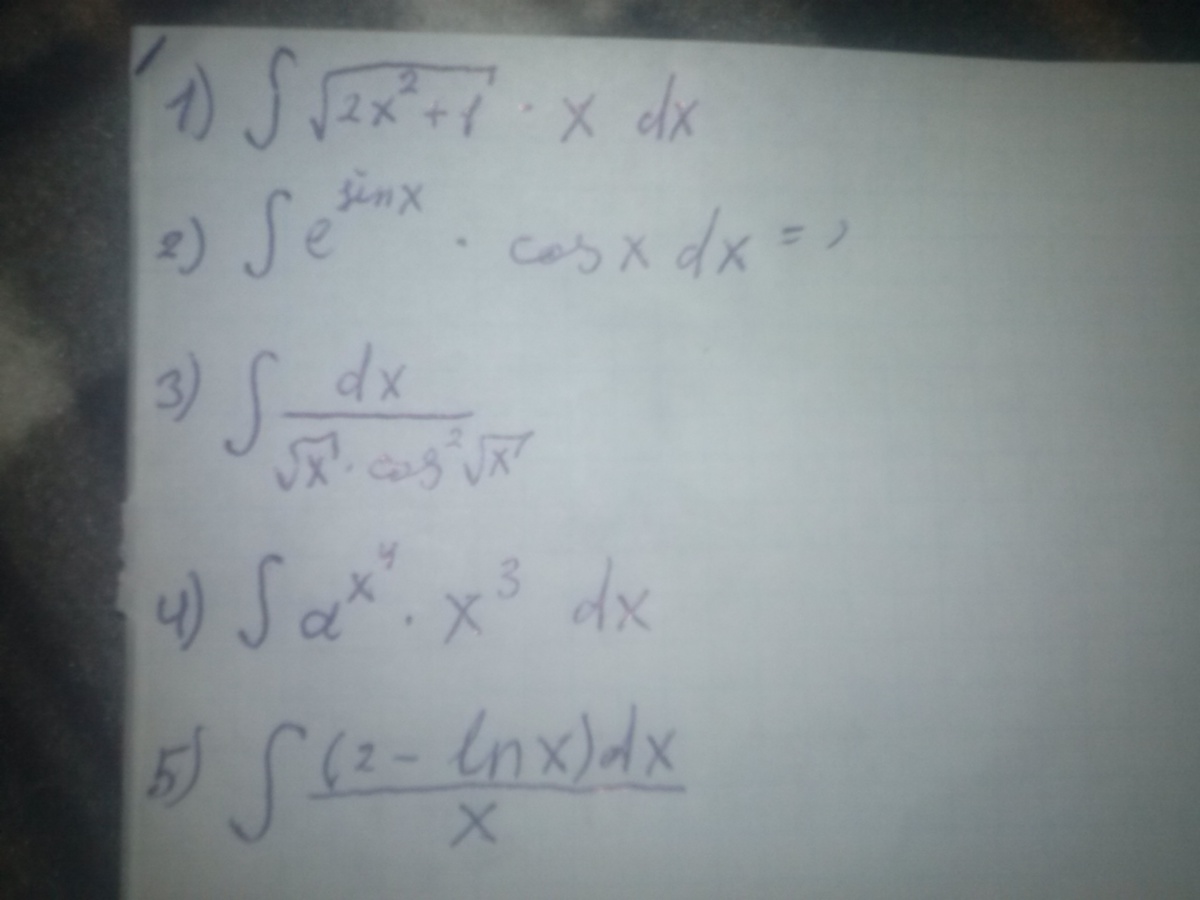 1) ∫ √(2x² + 1) · x dx
2) ∫ e^(sin x) · cos x dx =
3) ∫ dx / (√x · cos² √x)
4) ∫ a^(x⁴) · x³ dx
5) ∫ (2 - ln x) dx / x